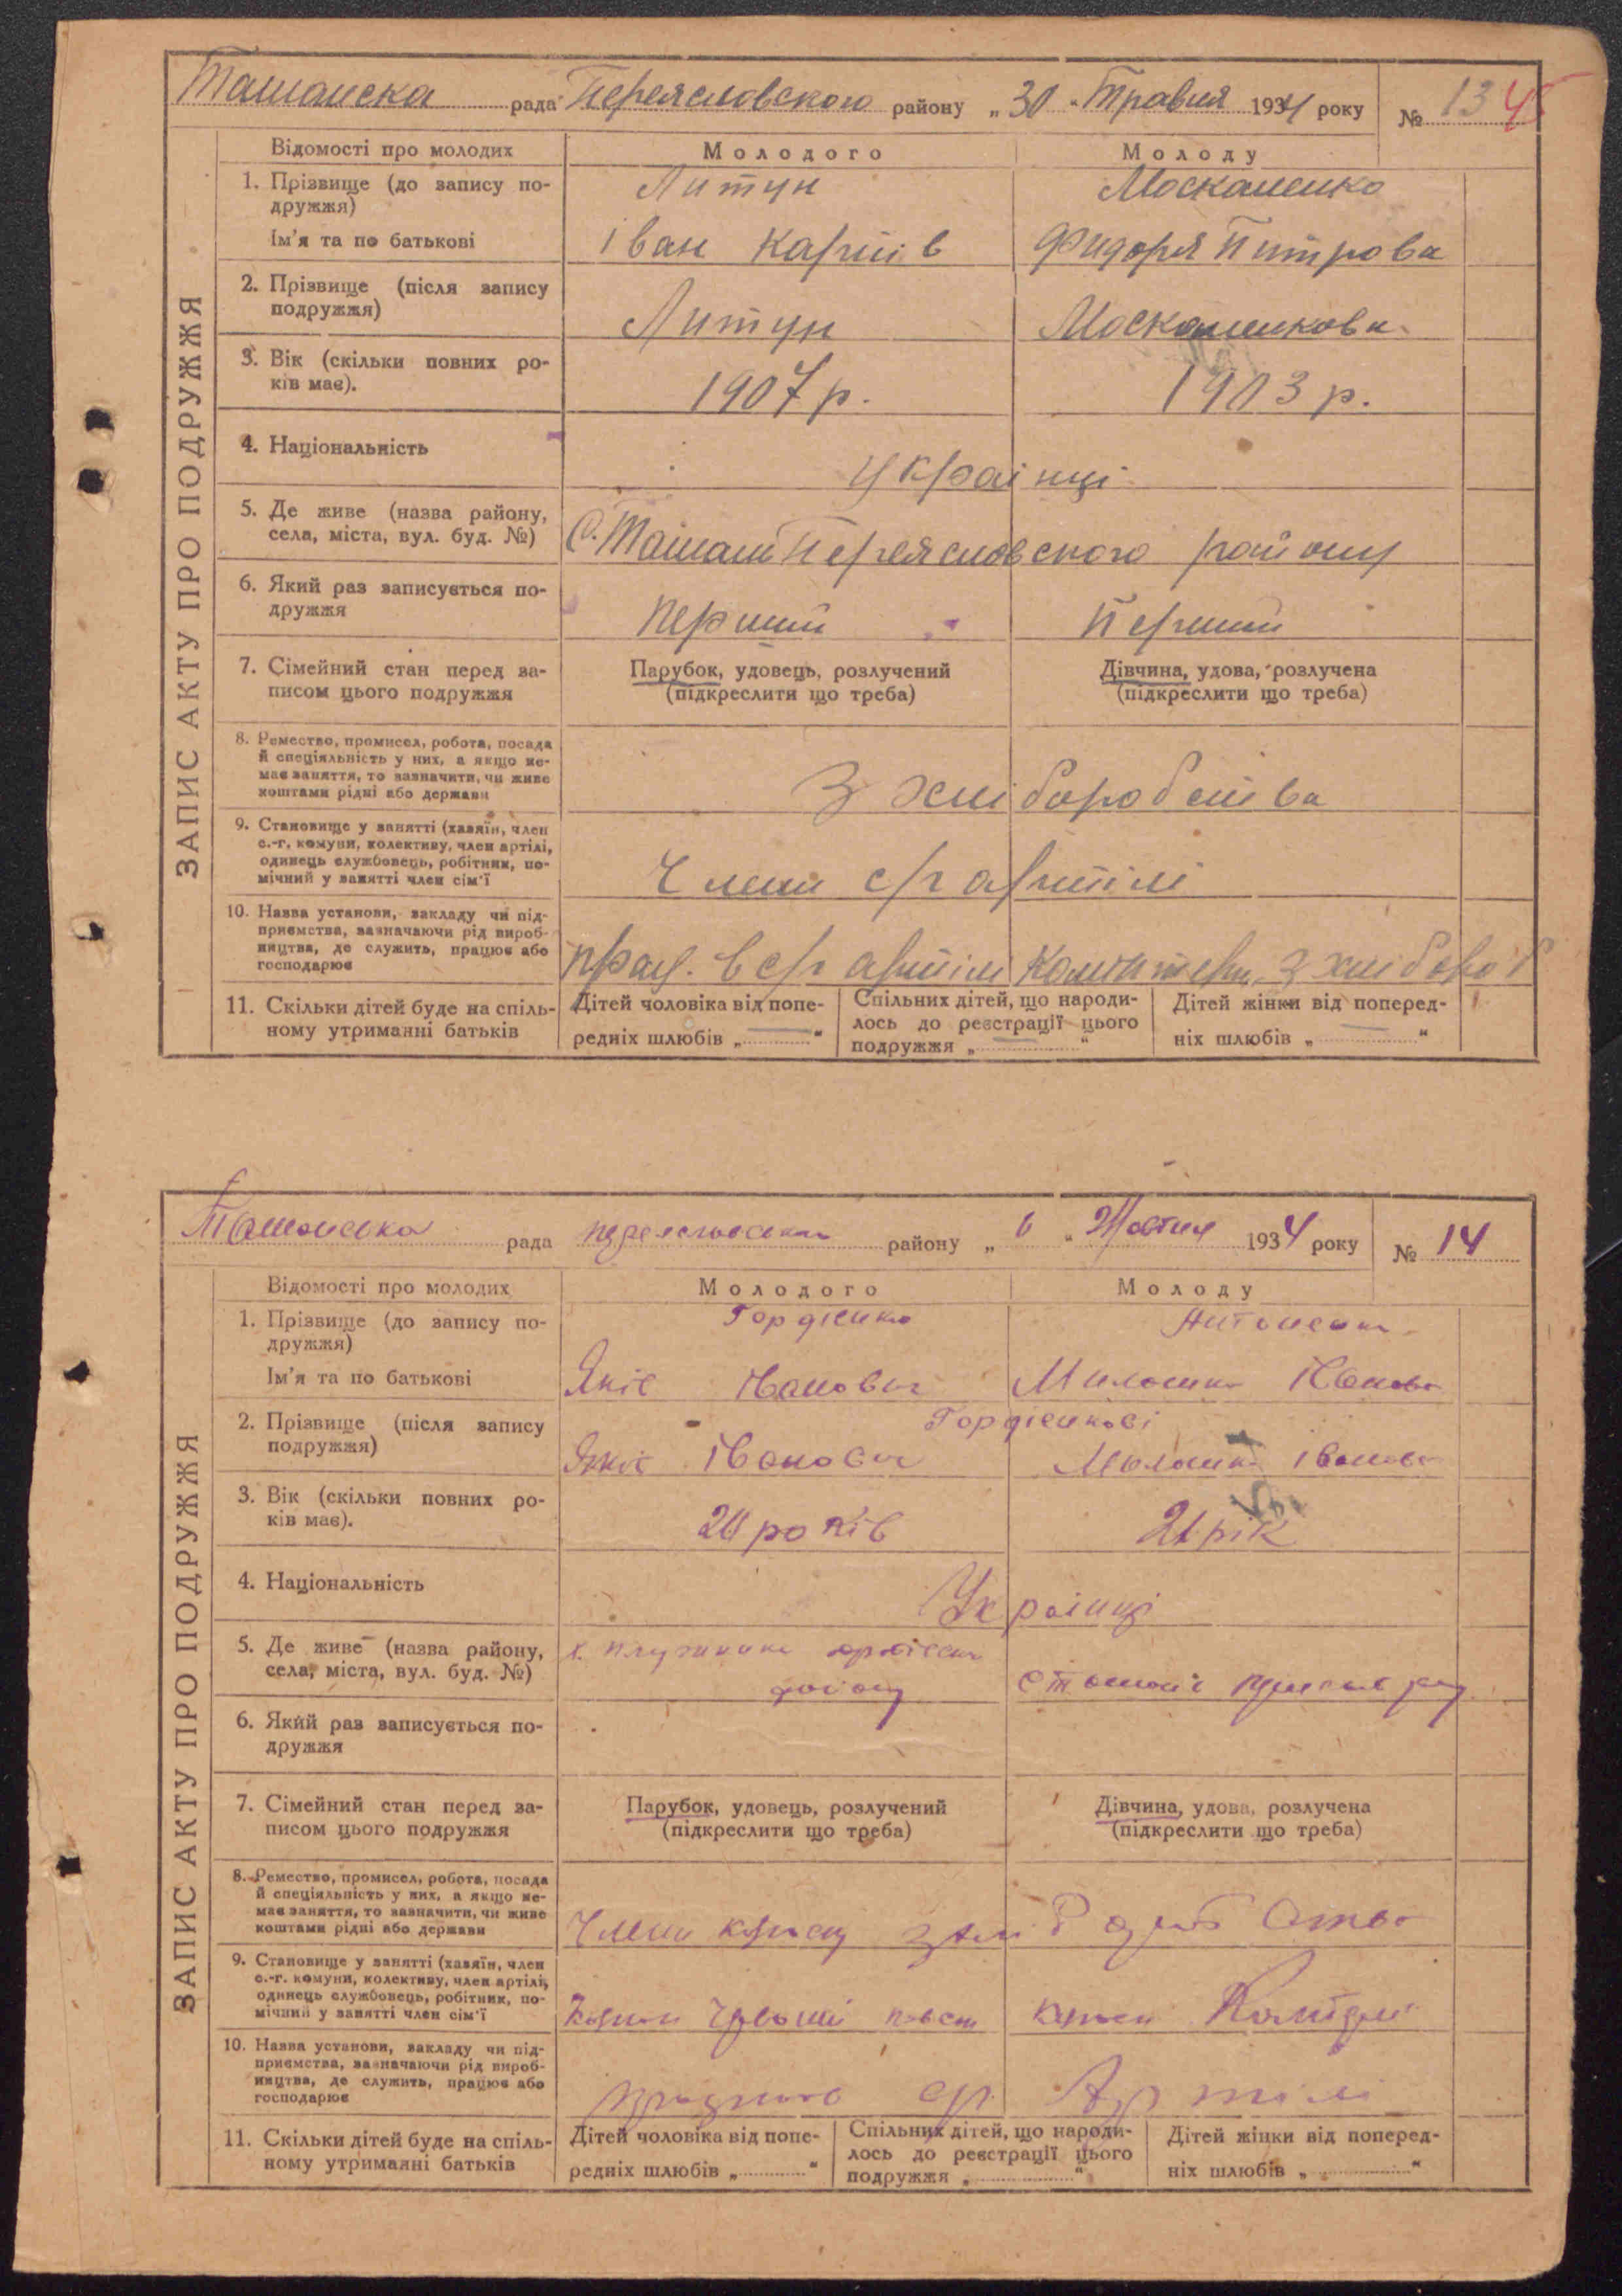 Ташанска рада Переясловского району „30“ Травня 1934 року № 13 45
ЗАПИС АКТУ ПРО ПОДРУЖЖЯ
Відомості про молодих Молодого Молоду
1. Прізвище (до запису по-
дружжя)
Литун Москаленко
Ім'я та по батькові Іван Карпів Фидоря Питрова
2. Прізвище (після запису
подружжя)
Литун Москаленкова
3. Вік (скільки повних ро-
ків має).
1907 р. 1903 р.
4. Національність
українці
5. Де живе (назва району,
села, міста, вул. буд. №)
С. Ташань Переясловского району
6. Який раз записується по-
дружжя
Перший Перший
7. Сімейний стан перед за-
писом цього подружжя
Парубок, удовець, розлучений
(підкреслити що треба)
Дівчина, удова, розлучена
(підкреслити що треба)
8. Ремество, промисел, робота, посада
й спеціяльність у них, а якщо не-
має заняття, то зазначити, чи живе
коштами рідні або держави
З хліборобства
9. Становище у занятті (хазяїн, член
с.-г. комуни, колективу, член артілі,
одинець службовець, робітник, по-
мічний у занятті член сім'ї
Члени с/г артілі
10. Назва установи, закладу чи під-
приємства, зазначаючи рід вироб-
ництва, де служить, працює або
господарює
прац. в с/г артілі з хлібороб
11. Скільки дітей буде на спіль-
ному утриманні батьків
Дітей чоловіка від попе-
редніх шлюбів „ — “
Спільних дітей, що народи-
лось до реєстрації цього
подружжя „ — “
Дітей жінки від поперед-
ніх шлюбів „ — “
Ташанська рада району „6“ Жовтня 1934 року № 14
ЗАПИС АКТУ ПРО ПОДРУЖЖЯ
Відомості про молодих Молодого Молоду
1. Прізвище (до запису по-
дружжя)
Гордієнко
Ім'я та по батькові Якіс Іванович Іванова
2. Прізвище (після запису
подружжя)
Гордієнкові
Якіс Іванович Іванова
3. Вік (скільки повних ро-
ків має).
24 років 21 рік
4. Національність
Українці
5. Де живе (назва району,
села, міста, вул. буд. №)
району
6. Який раз записується по-
дружжя
7. Сімейний стан перед за-
писом цього подружжя
Парубок, удовець, розлучений
(підкреслити що треба)
Дівчина, удова, розлучена
(підкреслити що треба)
8. Ремество, промисел, робота, посада
й спеціяльність у них, а якщо не-
має заняття, то зазначити, чи живе
коштами рідні або держави
Члени
9. Становище у занятті (хазяїн, член
с.-г. комуни, колективу, член артілі,
одинець службовець, робітник, по-
мічний у занятті член сім'ї
10. Назва установи, закладу чи під-
приємства, зазначаючи рід вироб-
ництва, де служить, працює або
господарює
Артілі
11. Скільки дітей буде на спіль-
ному утриманні батьків
Дітей чоловіка від попе-
редніх шлюбів „ “
Спільних дітей, що народи-
лось до реєстрації цього
подружжя „ “
Дітей жінки від поперед-
ніх шлюбів „ “